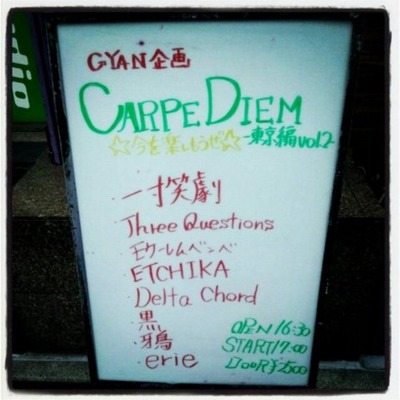 dio
GYAN企画
CARPE DIEM
☆今を楽しもうぜ☆
-東京編vol.2
・一寸笑劇
・Three Questions
・モケーレムベンベ
・ETCHIKA
・Delta Chord
・黒
・鴉
・erie
OPEN 16:30
START 17:00
DOOR ¥2500